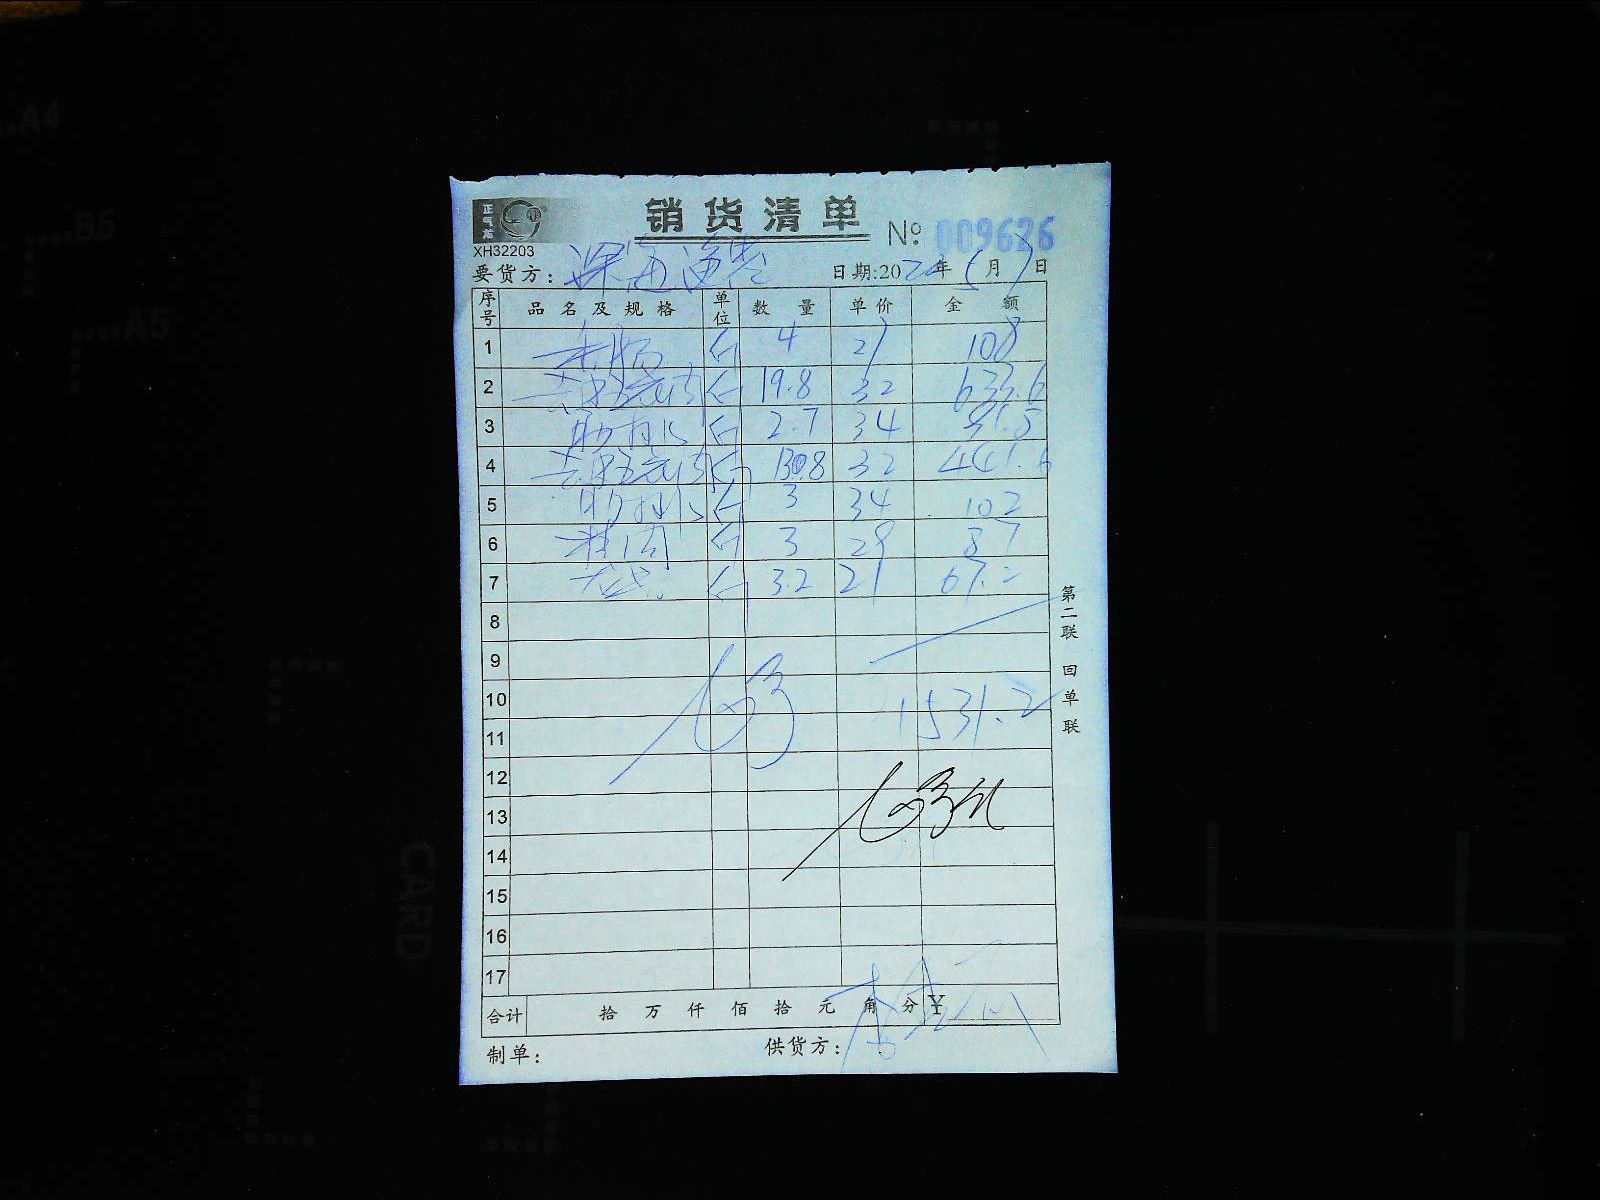 A4
B5
A5
CARD
正气龙
XH32203
销货清单
№ 009626
要货方：深海渔巷 日期:202 年 5 月 7 日
序号 品名及规格 单位 数量 单价 金额
1 斤 4 27 108
2 去皮五花肉 斤 19.8 32 633.6
3 肋排 斤 2.7 34 91.8
4 去皮五花肉 斤 13.8 32 441.6
5 肋排 斤 3 34 102
6 斤 3 29 87
7 斤 3.2 21 67.2
8
9
10 1531.2
11
12
13
14
15
16
17
合计 拾 万 仟 佰 拾 元 角 分 ¥
制单： 供货方：
第二联 回单联